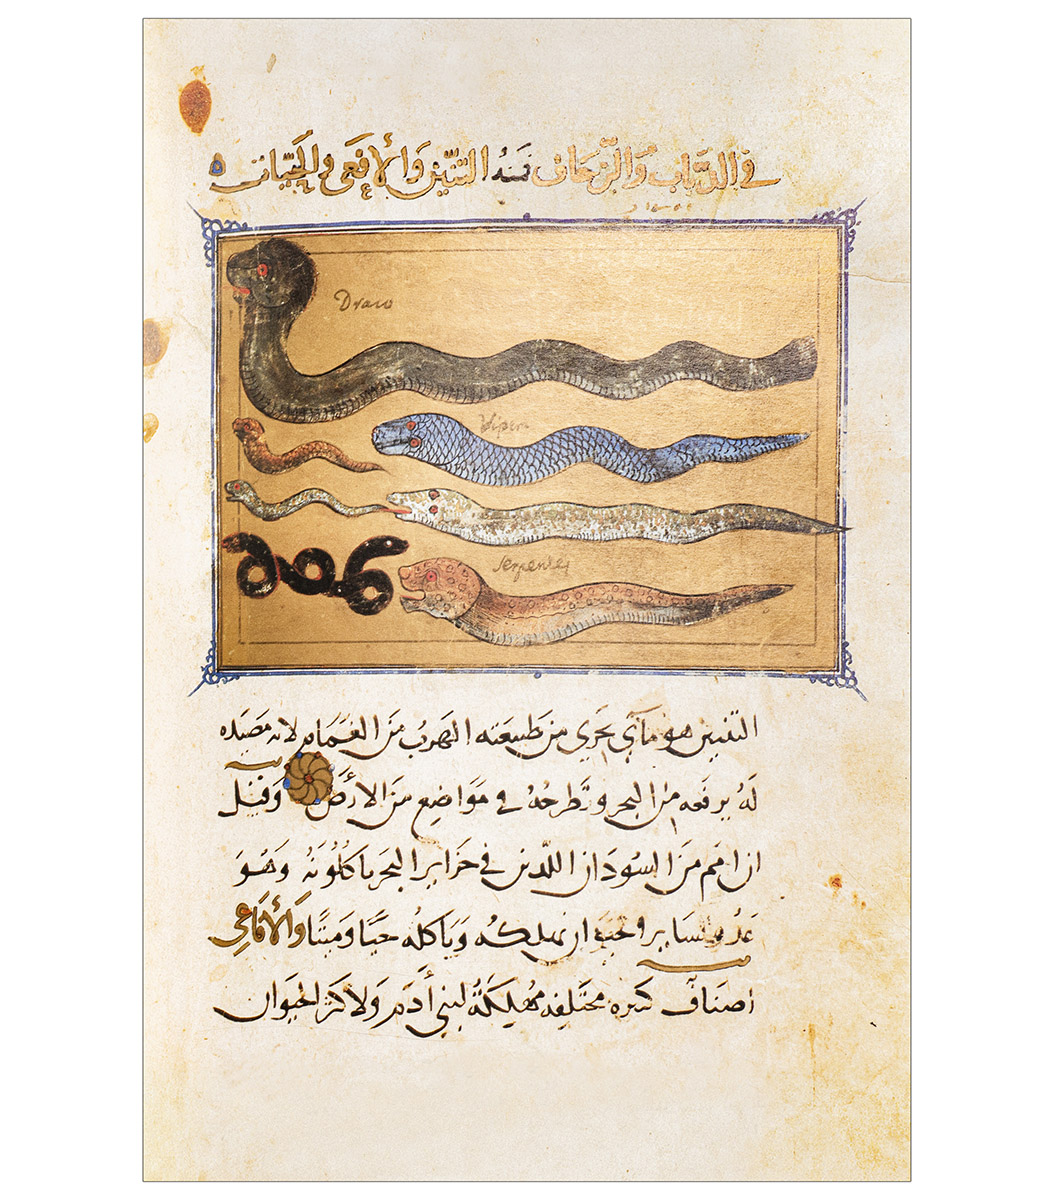 في الدباب والزحاف نبتدئ التنين والأفعى والحيات
Draco
Viperi
serpentes
التنين هو مأي بحري من طبيعته الهرب من الغمام لانه مصيده
له يرفعه من البحر وتطرحه في مواضع من الأرض وقيل
ان امم من السودان اللدين في جزاير البحر ياكلونه وهو
عدو لساير وتحبه ان يهلكه وياكله حيا وميتا والأفاعي
اصناف كثيره مختلفه مهلكة لبني أدم ولاكثر الحيوان